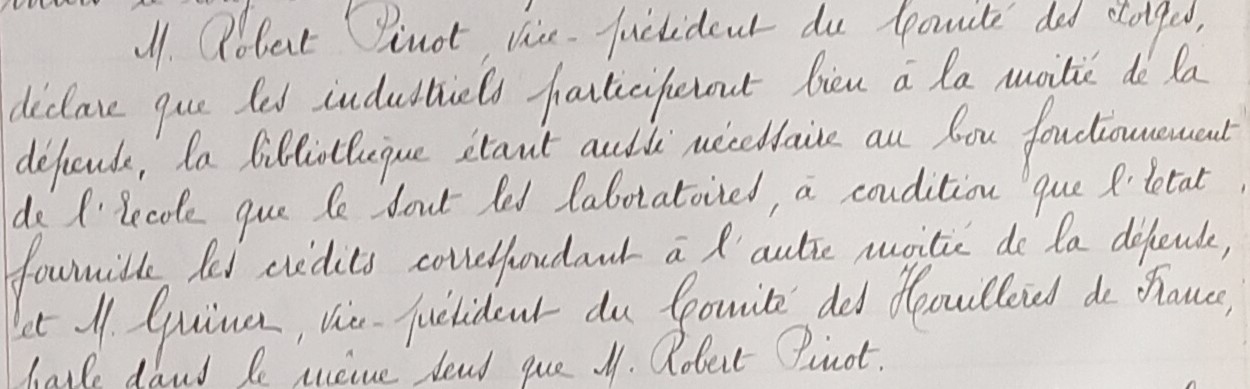 M. Robert Pinot, vice-président du Comité des Forges,
déclare que les industriels participeront bien à la moitié de la
dépense, la bibliothèque étant aussi nécessaire au bon fonctionnement
de l'Ecole que le sont les laboratoires, à condition que l'Etat
fournisse les crédits correspondant à l'autre moitié de la dépense,
et M. Grüner, vice-président du Comité des Houillères de France,
parle dans le même sens que M. Robert Pinot.